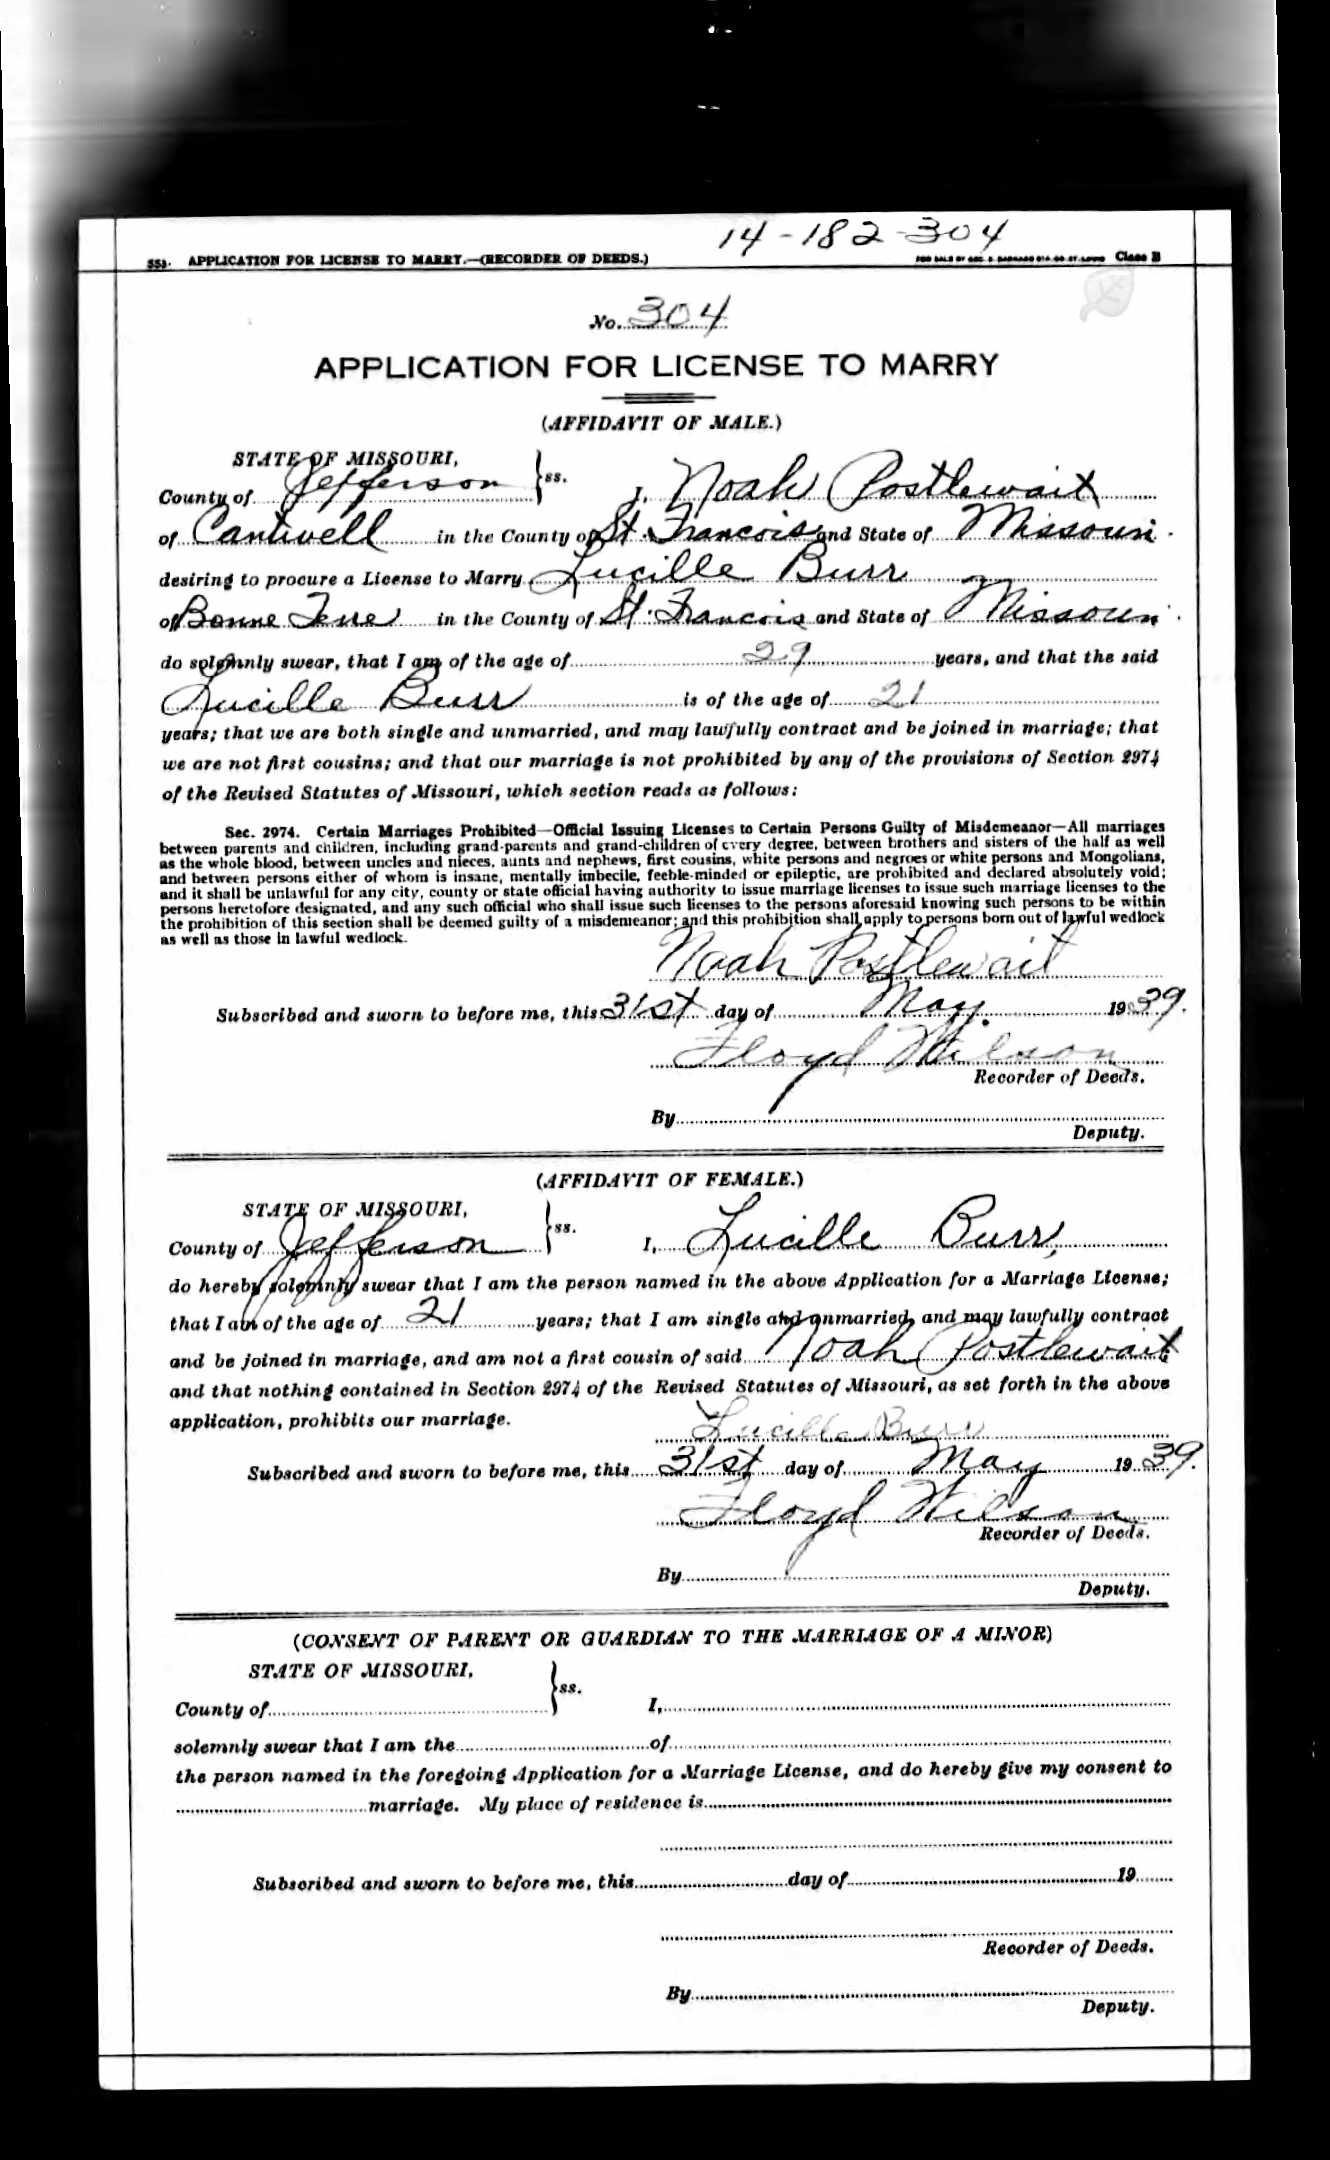 14-182-304
553. APPLICATION FOR LICENSE TO MARRY.—(RECORDER OF DEEDS.) Class B
No. 304
APPLICATION FOR LICENSE TO MARRY
(AFFIDAVIT OF MALE.)
STATE OF MISSOURI,
County of Jefferson } ss. I, Noah Postlewait
of Cantwell in the County of St. Francois and State of Missouri.
desiring to procure a License to Marry Lucille Burr
of Bonne Terre in the County of St. Francois and State of Missouri.
do solemnly swear, that I am of the age of 29 years, and that the said
Lucille Burr is of the age of 21
years; that we are both single and unmarried, and may lawfully contract and be joined in marriage; that
we are not first cousins; and that our marriage is not prohibited by any of the provisions of Section 2974
of the Revised Statutes of Missouri, which section reads as follows:
Sec. 2974. Certain Marriages Prohibited—Official Issuing Licenses to Certain Persons Guilty of Misdemeanor—All marriages
between parents and children, including grand-parents and grand-children of every degree, between brothers and sisters of the half as well
as the whole blood, between uncles and nieces, aunts and nephews, first cousins, white persons and negroes or white persons and Mongolians,
and between persons either of whom is insane, mentally imbecile, feeble-minded or epileptic, are prohibited and declared absolutely void;
and it shall be unlawful for any city, county or state official having authority to issue marriage licenses to issue such marriage licenses to the
persons heretofore designated, and any such official who shall issue such licenses to the persons aforesaid knowing such persons to be within
the prohibition of this section shall be deemed guilty of a misdemeanor; and this prohibition shall apply to persons born out of lawful wedlock
as well as those in lawful wedlock.
Noah Postlewait
Subscribed and sworn to before me, this 31st day of May 1939.
Floyd Wilson
Recorder of Deeds.
By
Deputy.
(AFFIDAVIT OF FEMALE.)
STATE OF MISSOURI,
County of Jefferson } ss. I, Lucille Burr,
do hereby solemnly swear that I am the person named in the above Application for a Marriage License;
that I am of the age of 21 years; that I am single and unmarried, and may lawfully contract
and be joined in marriage, and am not a first cousin of said Noah Postlewait
and that nothing contained in Section 2974 of the Revised Statutes of Missouri, as set forth in the above
application, prohibits our marriage.
Lucille Burr
Subscribed and sworn to before me, this 31st day of May 1939.
Floyd Wilson
Recorder of Deeds.
By
Deputy.
(CONSENT OF PARENT OR GUARDIAN TO THE MARRIAGE OF A MINOR)
STATE OF MISSOURI,
County of } ss. I,
solemnly swear that I am the of
the person named in the foregoing Application for a Marriage License, and do hereby give my consent to
marriage. My place of residence is
Subscribed and sworn to before me, this day of 19
Recorder of Deeds.
By
Deputy.